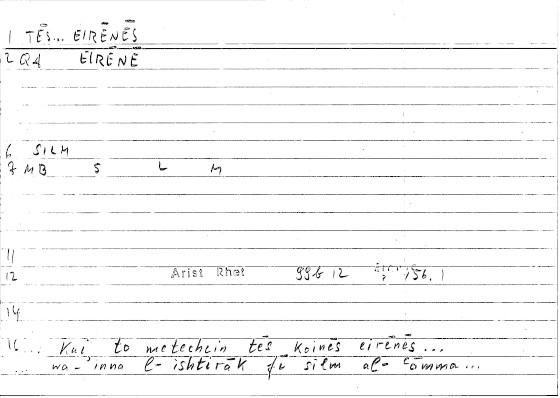 1 TĒS... EIRĒNĒS
2 Q4 EIRĒNĒ
6 SILM
7 MB S L M
11
12 Arist Rhet 99b 12 156.1
14
16 ... Kai to metechein tēs koinēs eirēnēs...
... wa-'inna l-ishtirāk fī silm al-ʿāmma...